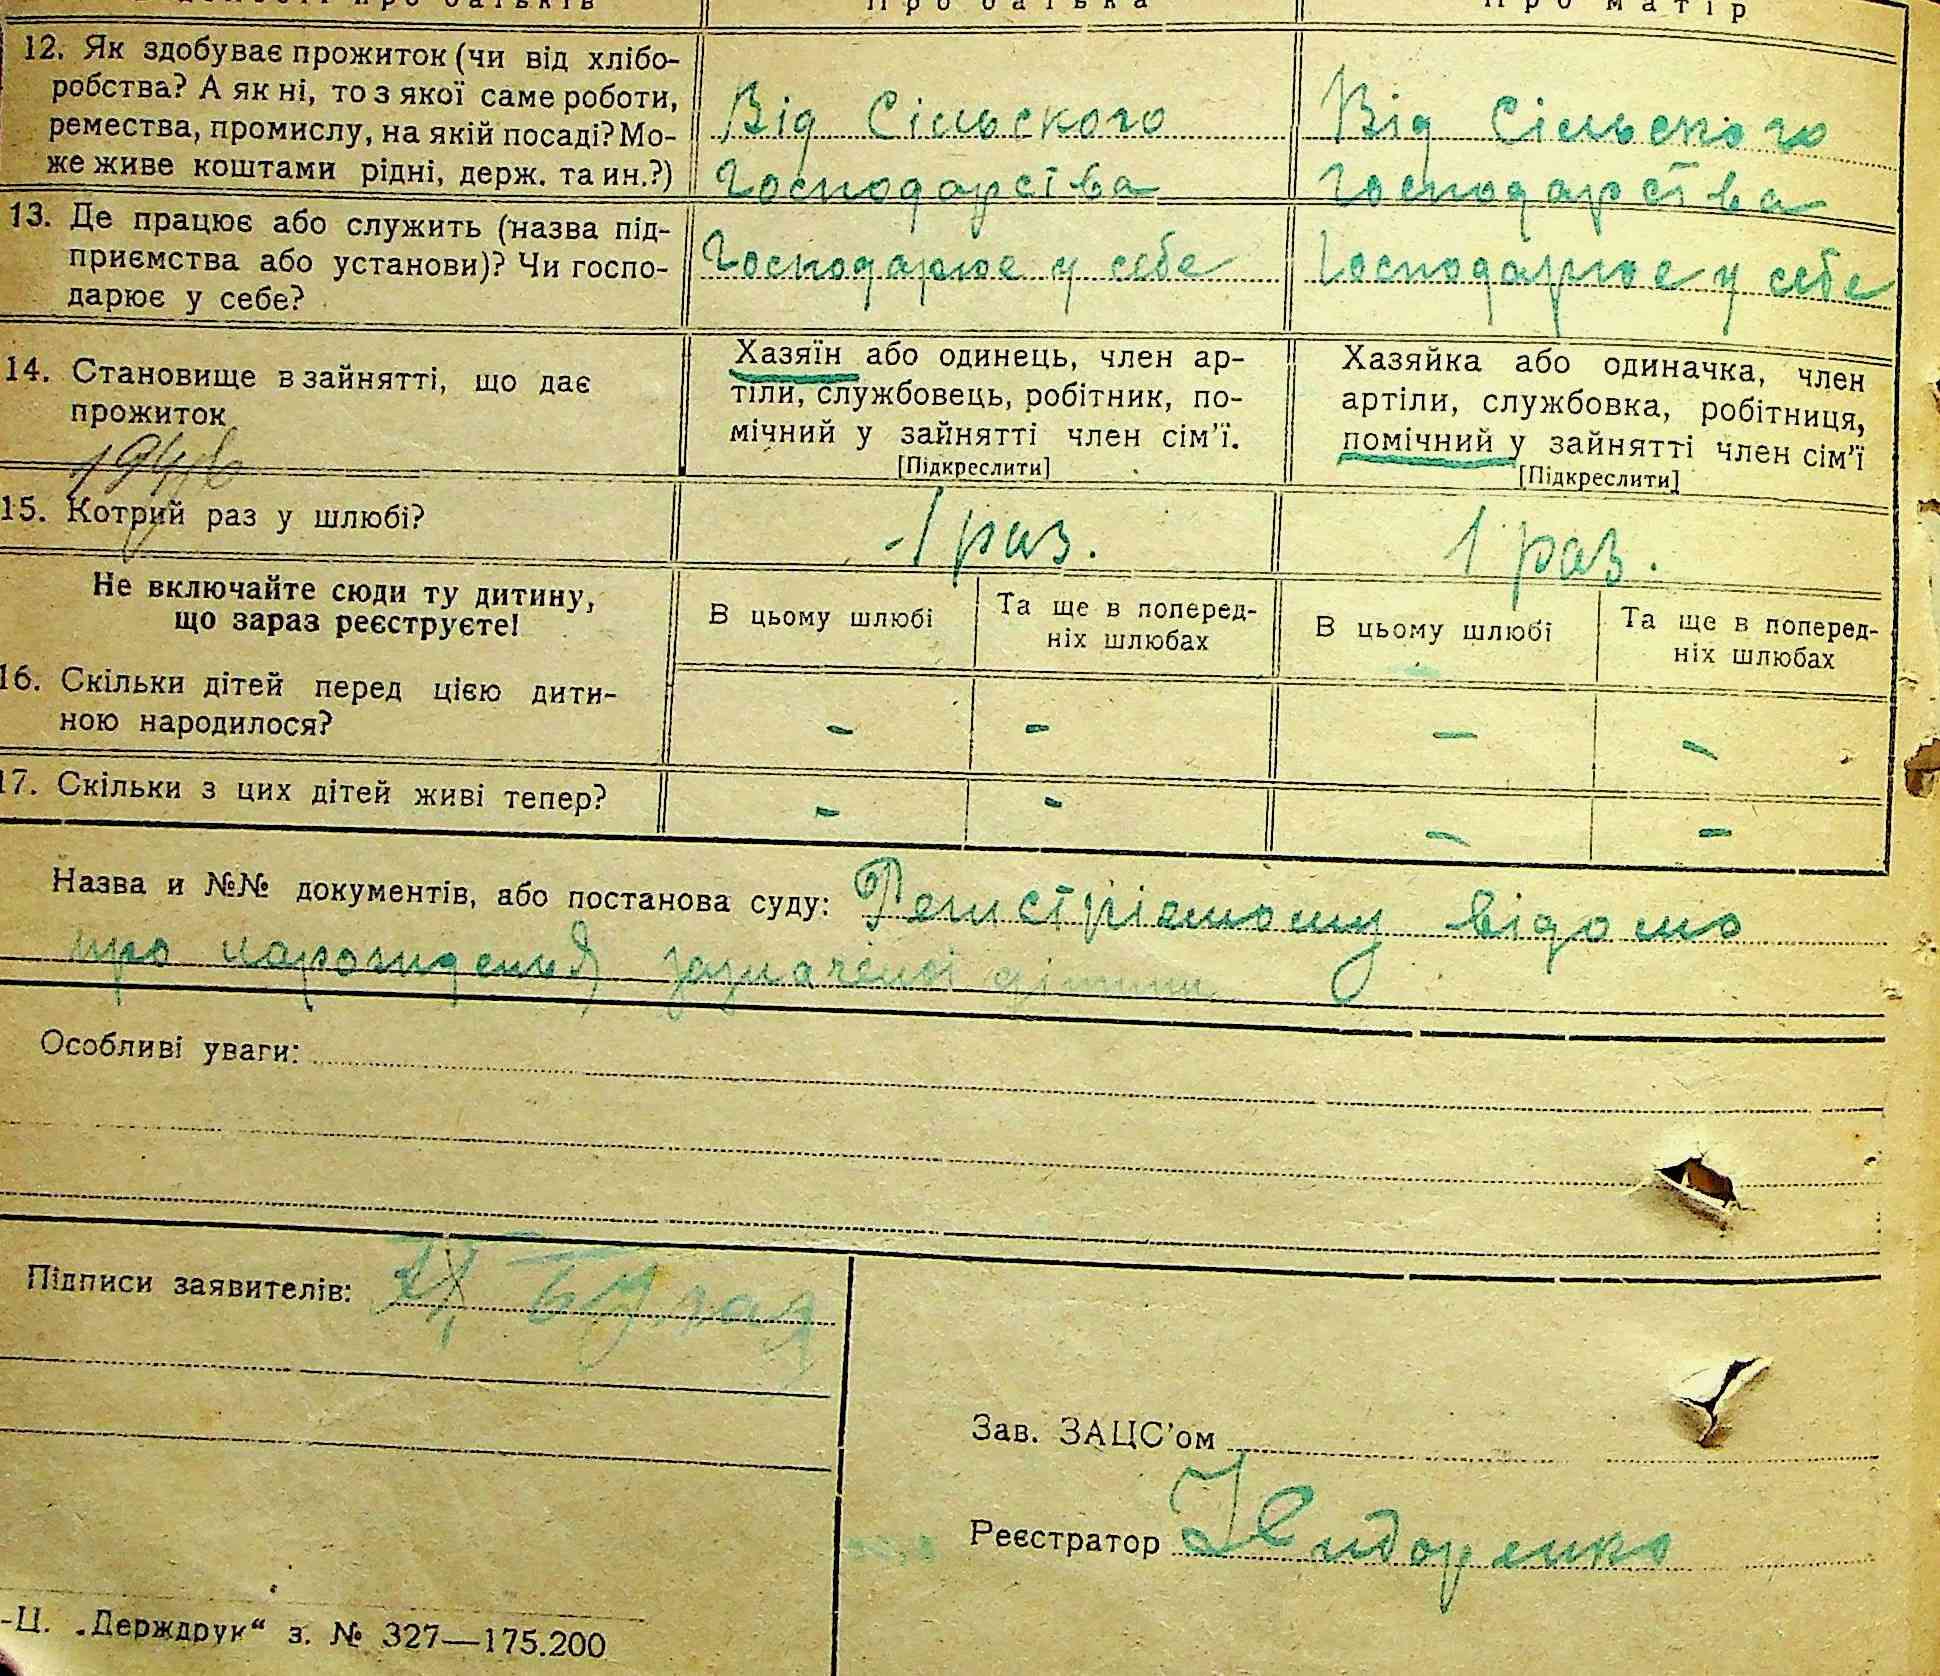 Про батька Про матір
12. Як здобуває прожиток (чи від хлібо-
робства? А як ні, то з якої саме роботи,
ремества, промислу, на якій посаді? Мо-
же живе коштами рідні, держ. та ин.?)
Від Сільского
Господарства
Від Сільского
Господарства
13. Де працює або служить (назва під-
приємства або установи)? Чи госпо-
дарює у себе?
Господарює у себе
Господарює у себе
14. Становище в зайнятті, що дає
прожиток
Хазяїн або одинець, член ар-
тіли, службовець, робітник, по-
мічний у зайнятті член сім'ї.
[Підкреслити]
Хазяйка або одиначка, член
артіли, службовка, робітниця,
помічний у зайнятті член сім'ї
[Підкреслити]
15. Котрий раз у шлюбі?
1 раз.
1 раз.
Не включайте сюди ту дитину,
що зараз реєструєте!
В цьому шлюбі
Та ще в поперед-
ніх шлюбах
В цьому шлюбі
Та ще в поперед-
ніх шлюбах
16. Скільки дітей перед цією дити-
ною народилося?
– – – –
17. Скільки з цих дітей живі тепер?
– – – –
Назва и №№ документів, або постанова суду: відомо
про зазначеної дітини
Особливі уваги:
Підписи заявителів:
Зав. ЗАЦС'ом
Реєстратор
-Ц. „Держдрук“ з. № 327—175.200